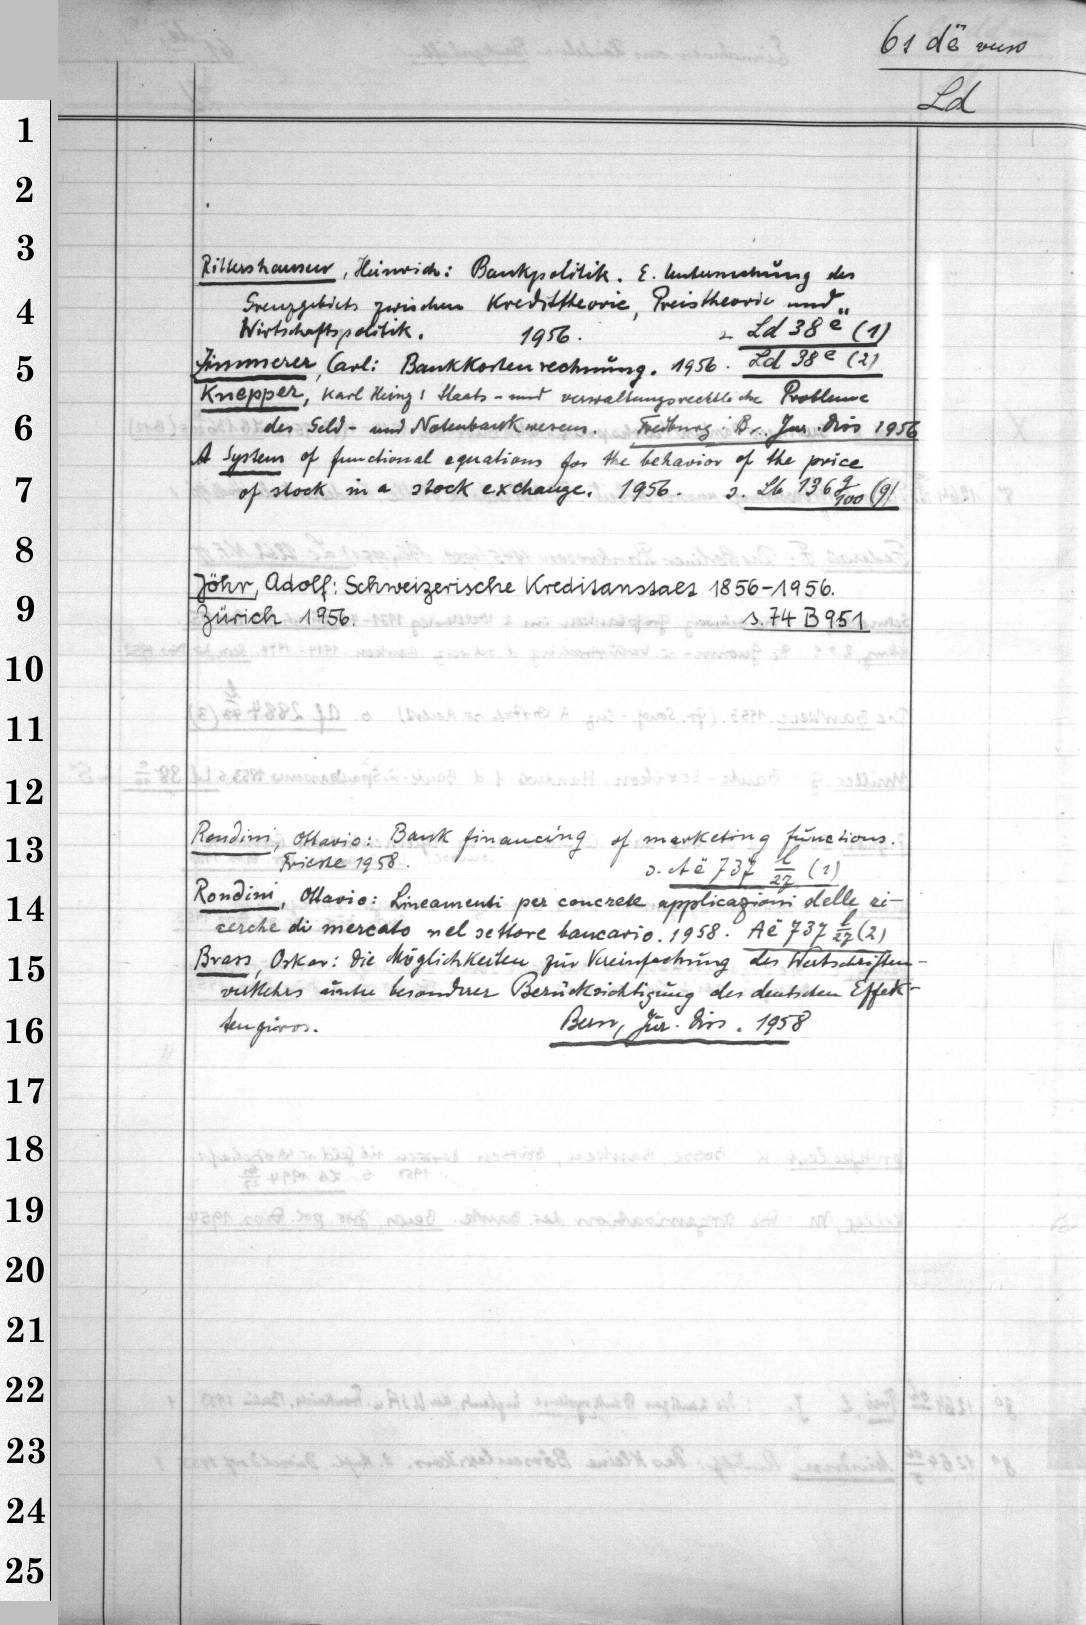 61 dë verso
Ld
1
2
3
Rittershausen, Heinrich: Bankpolitik. E. Untersuchung des
4
Grenzgebiets zwischen Kredittheorie, Preistheorie und
Wirtschaftspolitik. 1956. Ld 38 ë (1)
5
Zimmerer, Carl: Bankkostenrechnung. 1956. Ld 38 e (2)
Knepper, Karl Heinz: Staats- und verwaltungsrechtliche Probleme
6
des Geld- und Notenbankwesens. Freiburg i. Br. Jur. Diss 1956
A System of functional equations for the behavior of the price
7
of stock in a stock exchange. 1956. s. Lb 136 g/100 (9)
8
Jöhr, Adolf: Schweizerische Kreditanstalt 1856-1956.
9
Zürich 1956. s. 74 B 951
10
11
12
Rondini, Ottavio: Bank financing of marketing functions.
13
Trieste 1958. s. Aë 737 l/27 (1)
14
Rondini, Ottavio: Lineamenti per concrete applicazioni delle ri-
cerche di mercato nel settore bancario. 1958. Aë 737 l/27 (2)
15
Brass, Oskar: Die Möglichkeiten zur Vereinfachung des Wertschriften-
verkehrs unter besonderer Berücksichtigung des deutschen Effek-
16
tengiros. Bern, Jur. Diss. 1958
17
18
19
20
21
22
23
24
25